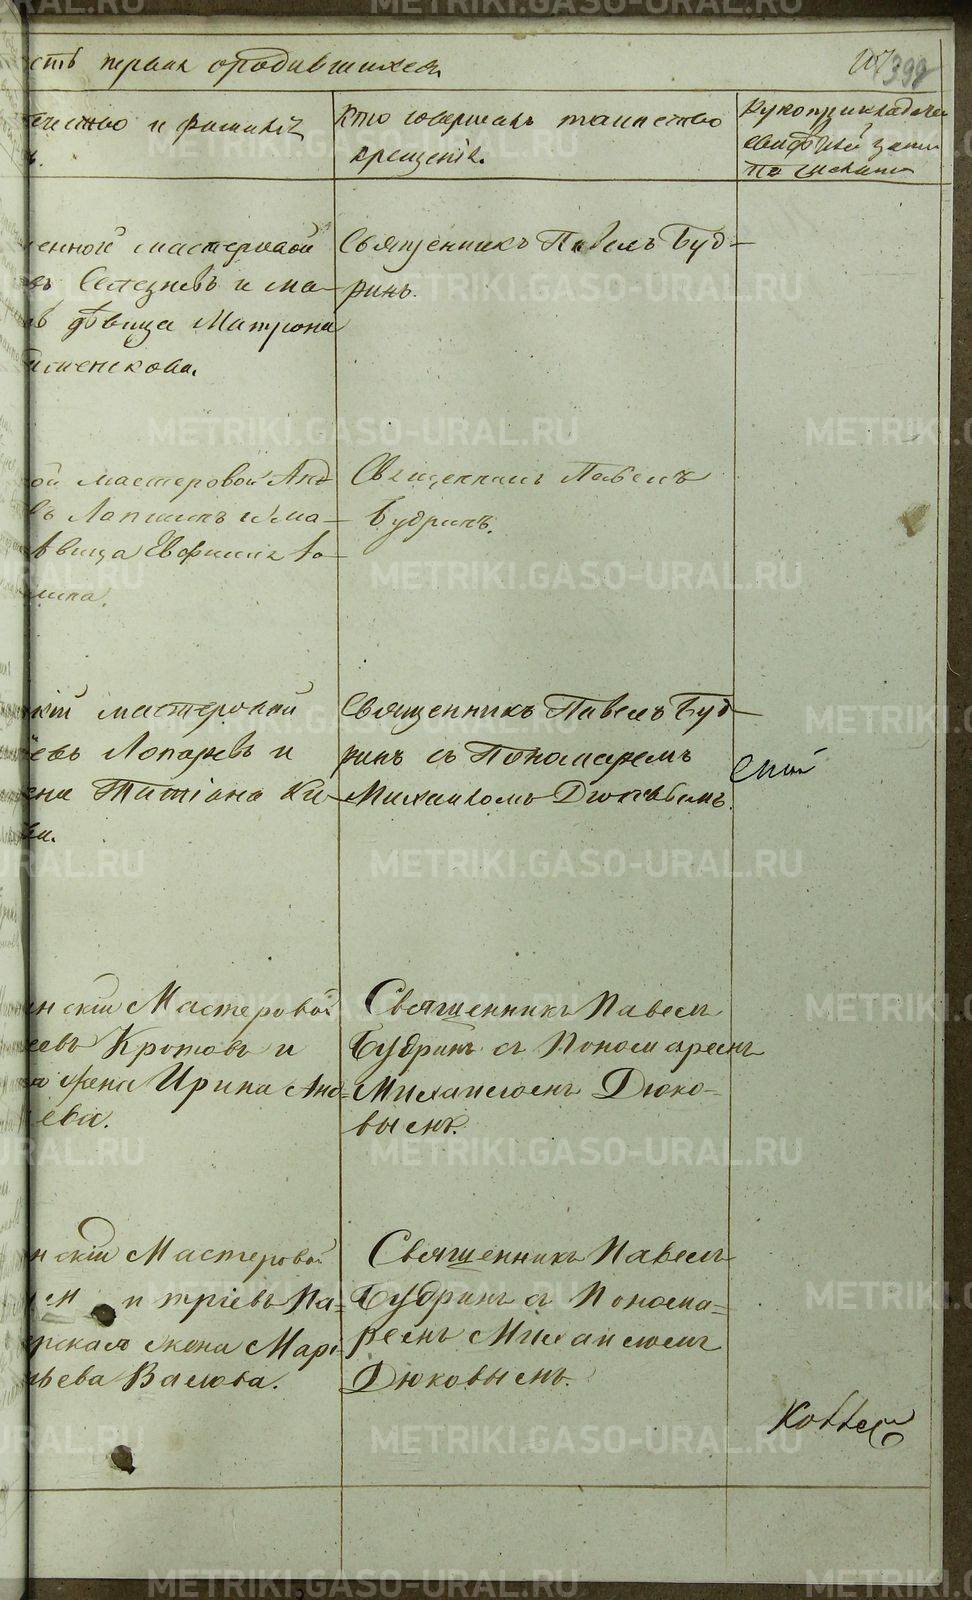 сть первая ородившихся
398
ечство и фамилія
Кто совершалъ таинство
крещенія.
рукоприкладство
свидѣтелей записи
по желанію
ленной мастеровой
въ Селезневъ и ма-
дѣвица Матрона
именскова.
Священникъ Павелъ Буд-
ринъ.
ой мастеровой Анд
въ Лапшинъ и ма-
вица Евфимія
мина.
Священникъ Павелъ
Будринъ.
кій мастеровой
евъ Лопаревъ и
ена Татіана Ки-
ва.
Священникъ Павелъ Буд-
ринъ съ Пономаремъ
Михаиломъ Дюковымъ.
нскій Мастеровой
еевъ Кротовъ и
го жена Ирина Анд-
ева.
Священникъ Павелъ
Будринъ съ Пономаремъ
Михаиломъ Дюко-
вымъ.
нскій Мастеровой
итріевъ Па-
жена Марі
ьева Валова.
Священникъ Павелъ
Будринъ съ Понома=
ремъ Михаиломъ
Дюковымъ.
METRIKI.GASO-URAL.RU